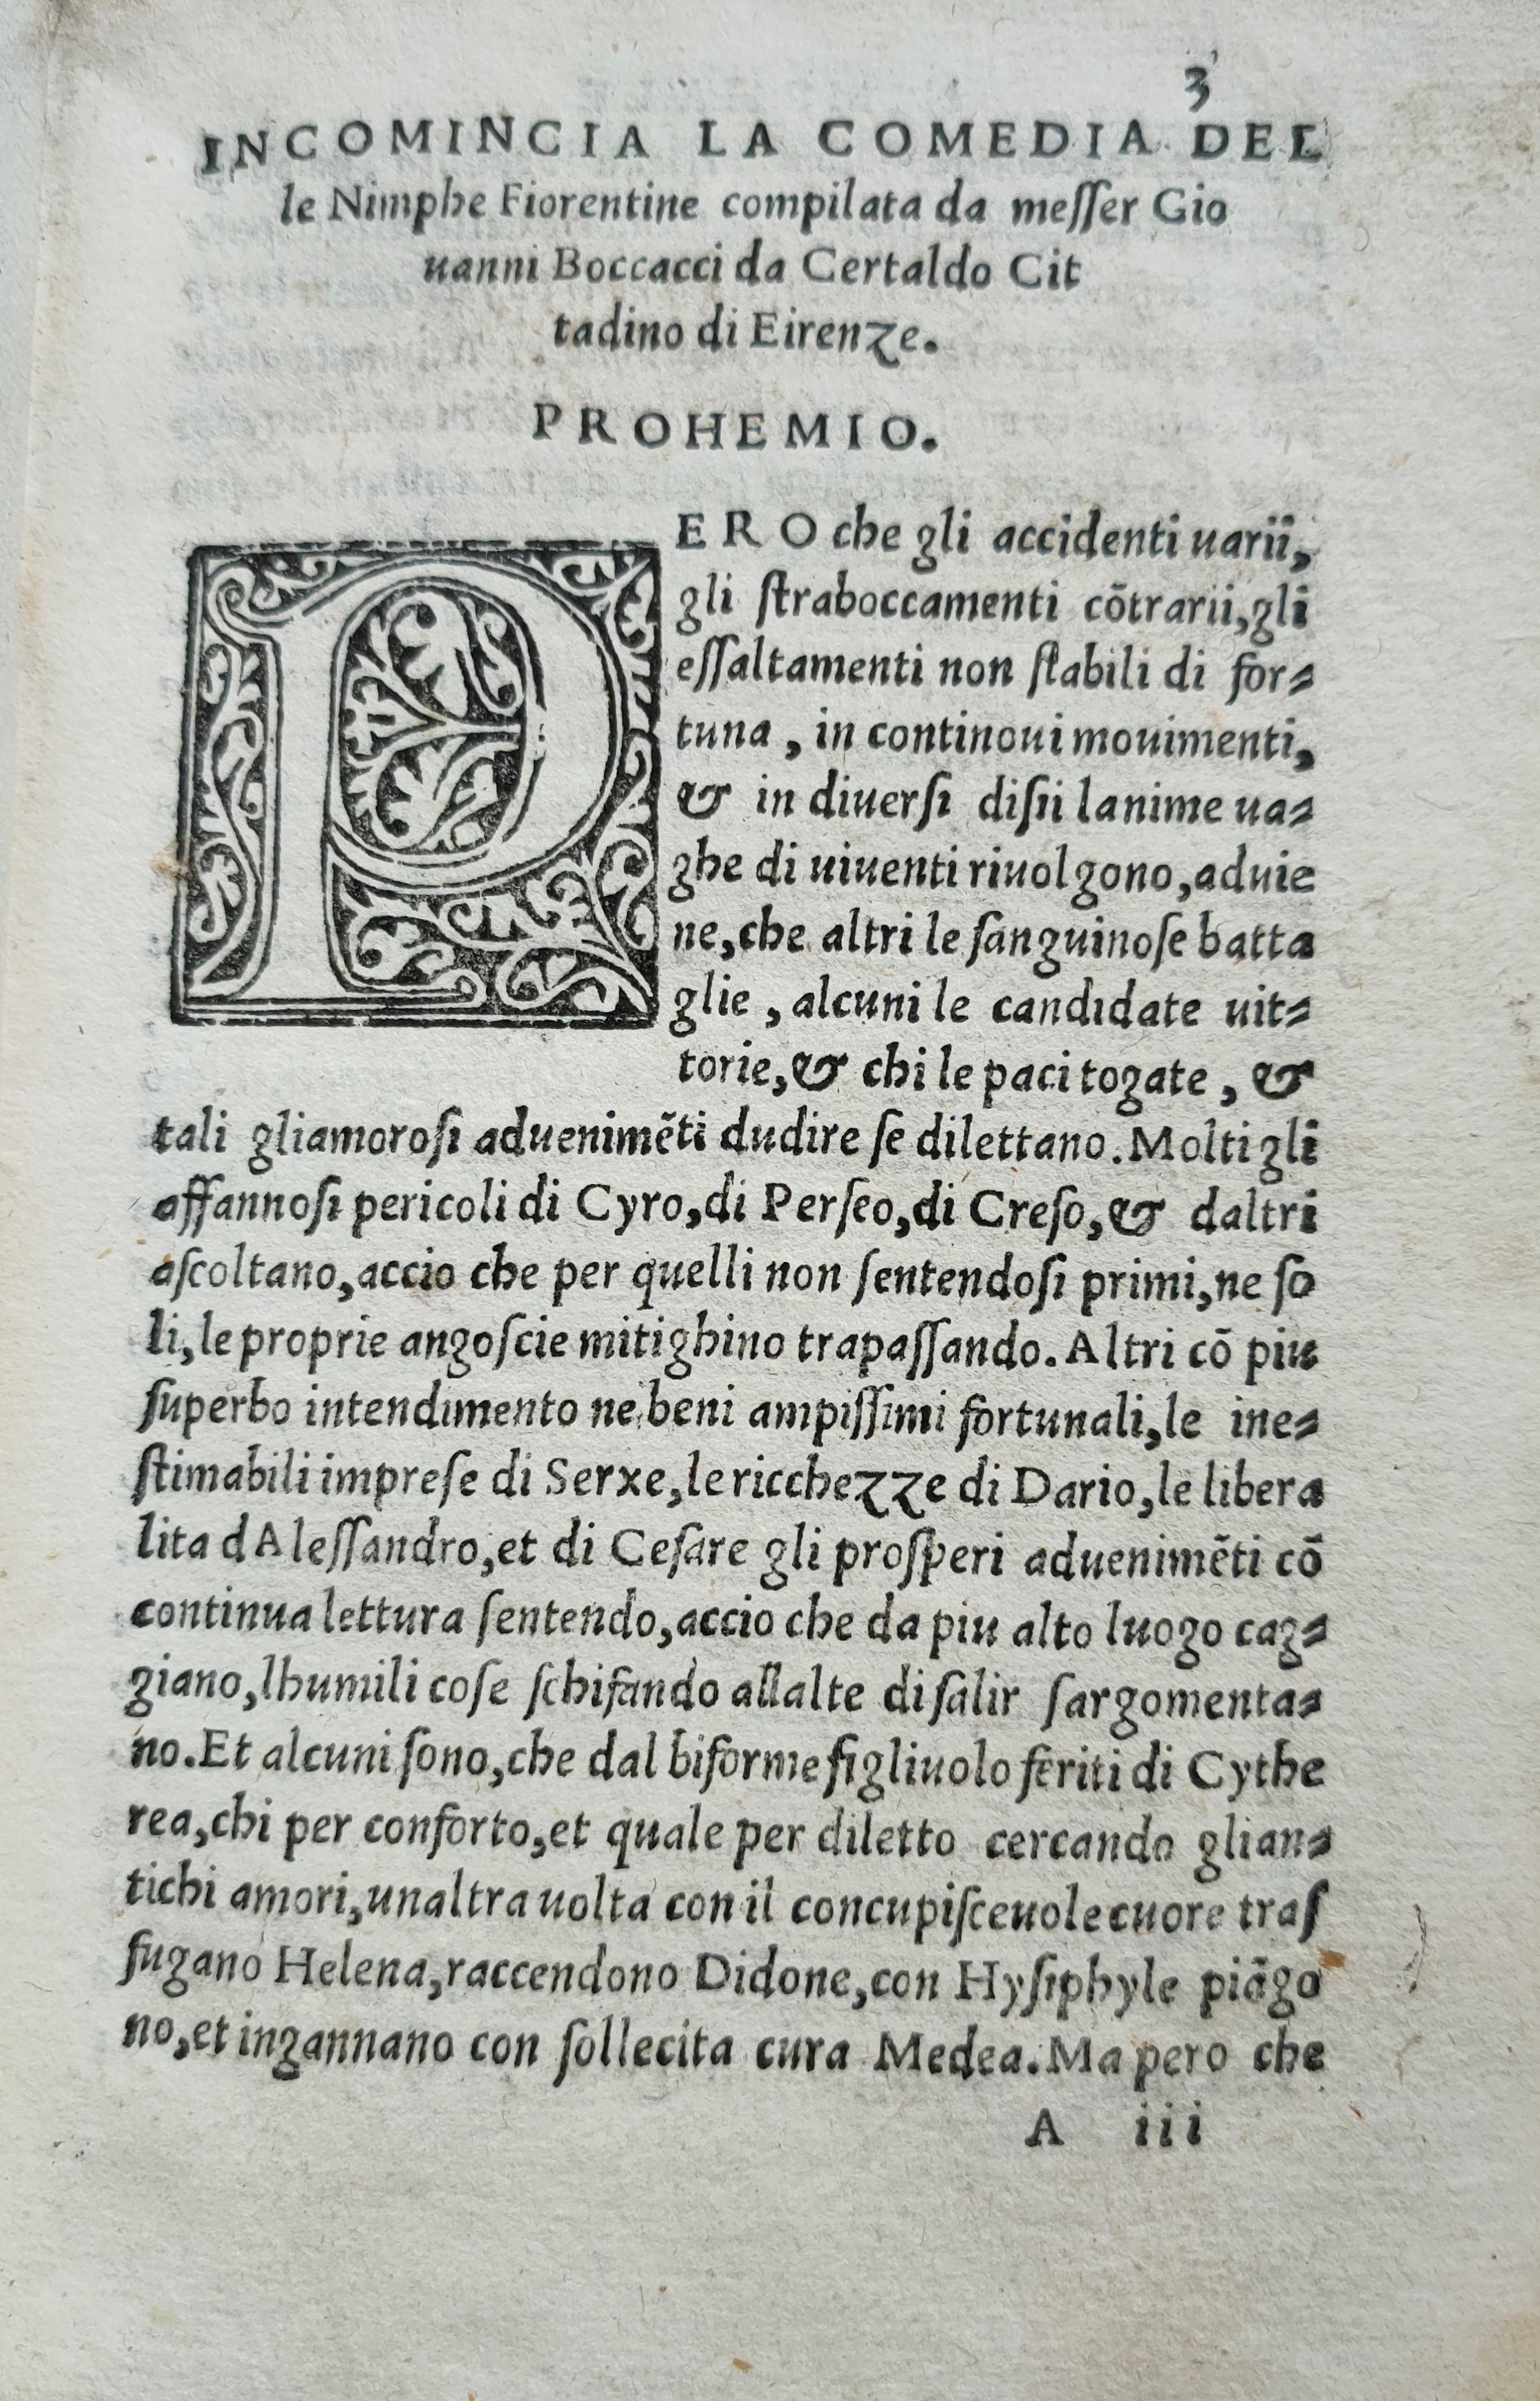 3
INCOMINCIA LA COMEDIA DEL
le Nimphe Fiorentine compilata da meſſer Gio
uanni Boccacci da Certaldo Cit
tadino di Eirenze.
PROHEMIO.
PERO che gli accidenti uarii,
gli ſtraboccamenti cõtrarii,gli
eſſaltamenti non ſtabili di for-
tuna, in continoui mouimenti,
& in diuerſi diſii lanime ua-
ghe di uiuenti riuolgono,aduie
ne,che altri le ſanguinoſe batta
glie, alcuni le candidate uit-
torie,& chi le paci togate, &
tali gliamoroſi aduenimẽti dudire ſe dilettano. Molti gli
affannoſi pericoli di Cyro,di Perſeo,di Creſo,& daltri
aſcoltano,accio che per quelli non ſentendoſi primi,ne ſo
li,le proprie angoſcie mitighino trapaſſando. Altri cõ piu
ſuperbo intendimento ne beni ampiſſimi fortunali,le ine-
ſtimabili impreſe di Serxe,le ricchezze di Dario,le libera
lita dAleſſandro,et di Ceſare gli proſperi aduenimẽti cõ
continua lettura ſentendo,accio che da piu alto luogo cag-
giano,lhumili coſe ſchifando allalte di ſalir ſargomenta-
no. Et alcuni ſono,che dal biforme figliuolo feriti di Cythe
rea,chi per conforto,et quale per diletto cercando glian-
tichi amori,unaltra uolta con il concupiſceuole cuore traſ
fugano Helena,raccendono Didone,con Hyſiphyle piãgo
no,et ingannano con ſollecita cura Medea. Ma pero che
A iii